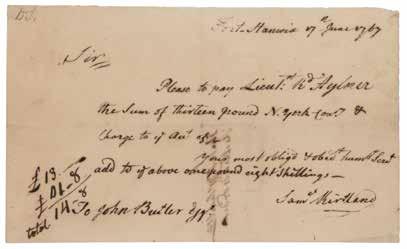 Fort-Stanwix 17th June 1767
Sir
Please to pay Lieut. Rd Aylmer
the Sum of thirteen pound N. York Cury. &
Charge to ye Act of
Your most obligd & obedt humle Servt
add to ye above one pound eight Shillings—
Saml Kirtland
£ 13
£ 01-8
total 14 8
To John Butler Esqr